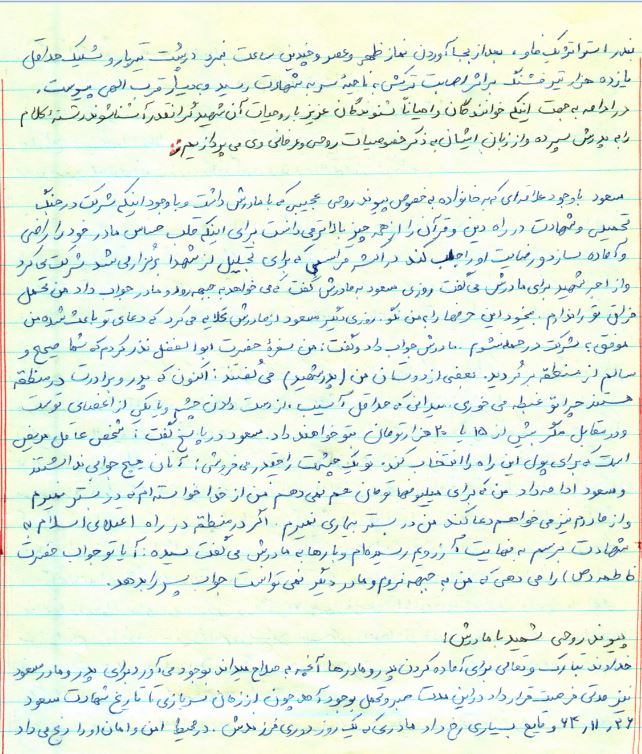 بندر استراتژیک فاو، بعد از بجا آوردن نماز ظهر و عصر و چندین ساعت نبرد در پشت تیربار و شلیک حداقل
یازده هزار تیر فشنگ بر اثر اصابت ترکش به ناحیه سر به شهادت رسید و به دیار قرب الهی پیوست.
در ادامه به جهت اینکه خوانندگان و احیاناً شنوندگان عزیز با روحیات آن شهید گرانقدر آشنا شوند رشته کلام
را به پدرش سپرده و از زبان ایشان به ذکر خصوصیات روحی و عرفانی وی می پردازیم
مسعود با وجود علاقه‌ای که به خانواده به خصوص پیوند روحی عجیبی که با مادرش داشت و با وجود اینکه شرکت در جنگ
تحمیلی و شهادت در راه دین و قرآن را از همه چیز بالاتر می دانست برای اینکه قلب حساس مادر خود را راضی
و آماده سازد و رضایت او را جلب کند در اکثر مراسمی که برای تجلیل از شهدا برگزار می شد شرکت می کرد
و از اجر شهید برای مادرش می گفت روزی مسعود به مادرش گفت که می خواهد به جبهه رود و مادر جواب داد من تحمل
فراق تو را ندارم. بیخود این حرفها را به من نگو. روزی دیگر مسعود از مادرش گلایه می کرد که دعای تو باعث شده من
موفق به شرکت در حمله نشوم. مادرش جواب داد و گفت: من سفره حضرت ابوالفضل نذر کردم که شما صحیح و
سالم از منطقه برگردید. بعضی از دوستان من (پدر شهید) می گفتند: اکنون که پدر و برادرت در منطقه
هستند چرا تو غبطه می خوری. میدانی که حداقل آسیب، از دست دادن چشم و یا یکی از اعضای توست
و در مقابل مگر بیش از ۱۵ یا ۲۰ هزار تومان بتو خواهند داد. مسعود در پاسخ گفت: شخص عاقل مریض
است که برای پول این راه را انتخاب کند. تو یک چشمت را چقدر می فروشی؟ آنان هیچ جوابی نداشتند
و مسعود ادامه داد من که برای میلیونها تومان هم نمی دهم من از خدا خواسته‌ام که در بستر نمیرم
و از مادرم نیز می خواهم دعا کند من در بستر بیماری نمیرم. اگر در منطقه در راه اعتلای اسلام به
شهادت برسم به نهایت آرزویم رسیده‌ام و بارها به مادرش می گفت سیده: آیا تو جواب حضرت
فاطمه (ص) را می دهی که من به جبهه نروم و مادر دیگر نمی توانست جواب پسر را بدهد.
پیوند روحی شهید با مادرش:
خداوند تبارک و تعالی برای آماده کردن پدر و مادرها آنچه به صلاح میداند بوجود می آورد برای پدر و مادر مسعود
نیز مدتی فرصت قرار داد در این مدت صبر و تحمل بوجود آمد چون از زمان سربازی تا تاریخ شهادت مسعود
۲۶ر۱۱ر۶۴ وقایع بسیاری رخ داد مادری که یک روز دوری فرزندش، در محیط امن و امان او را رنج می داد